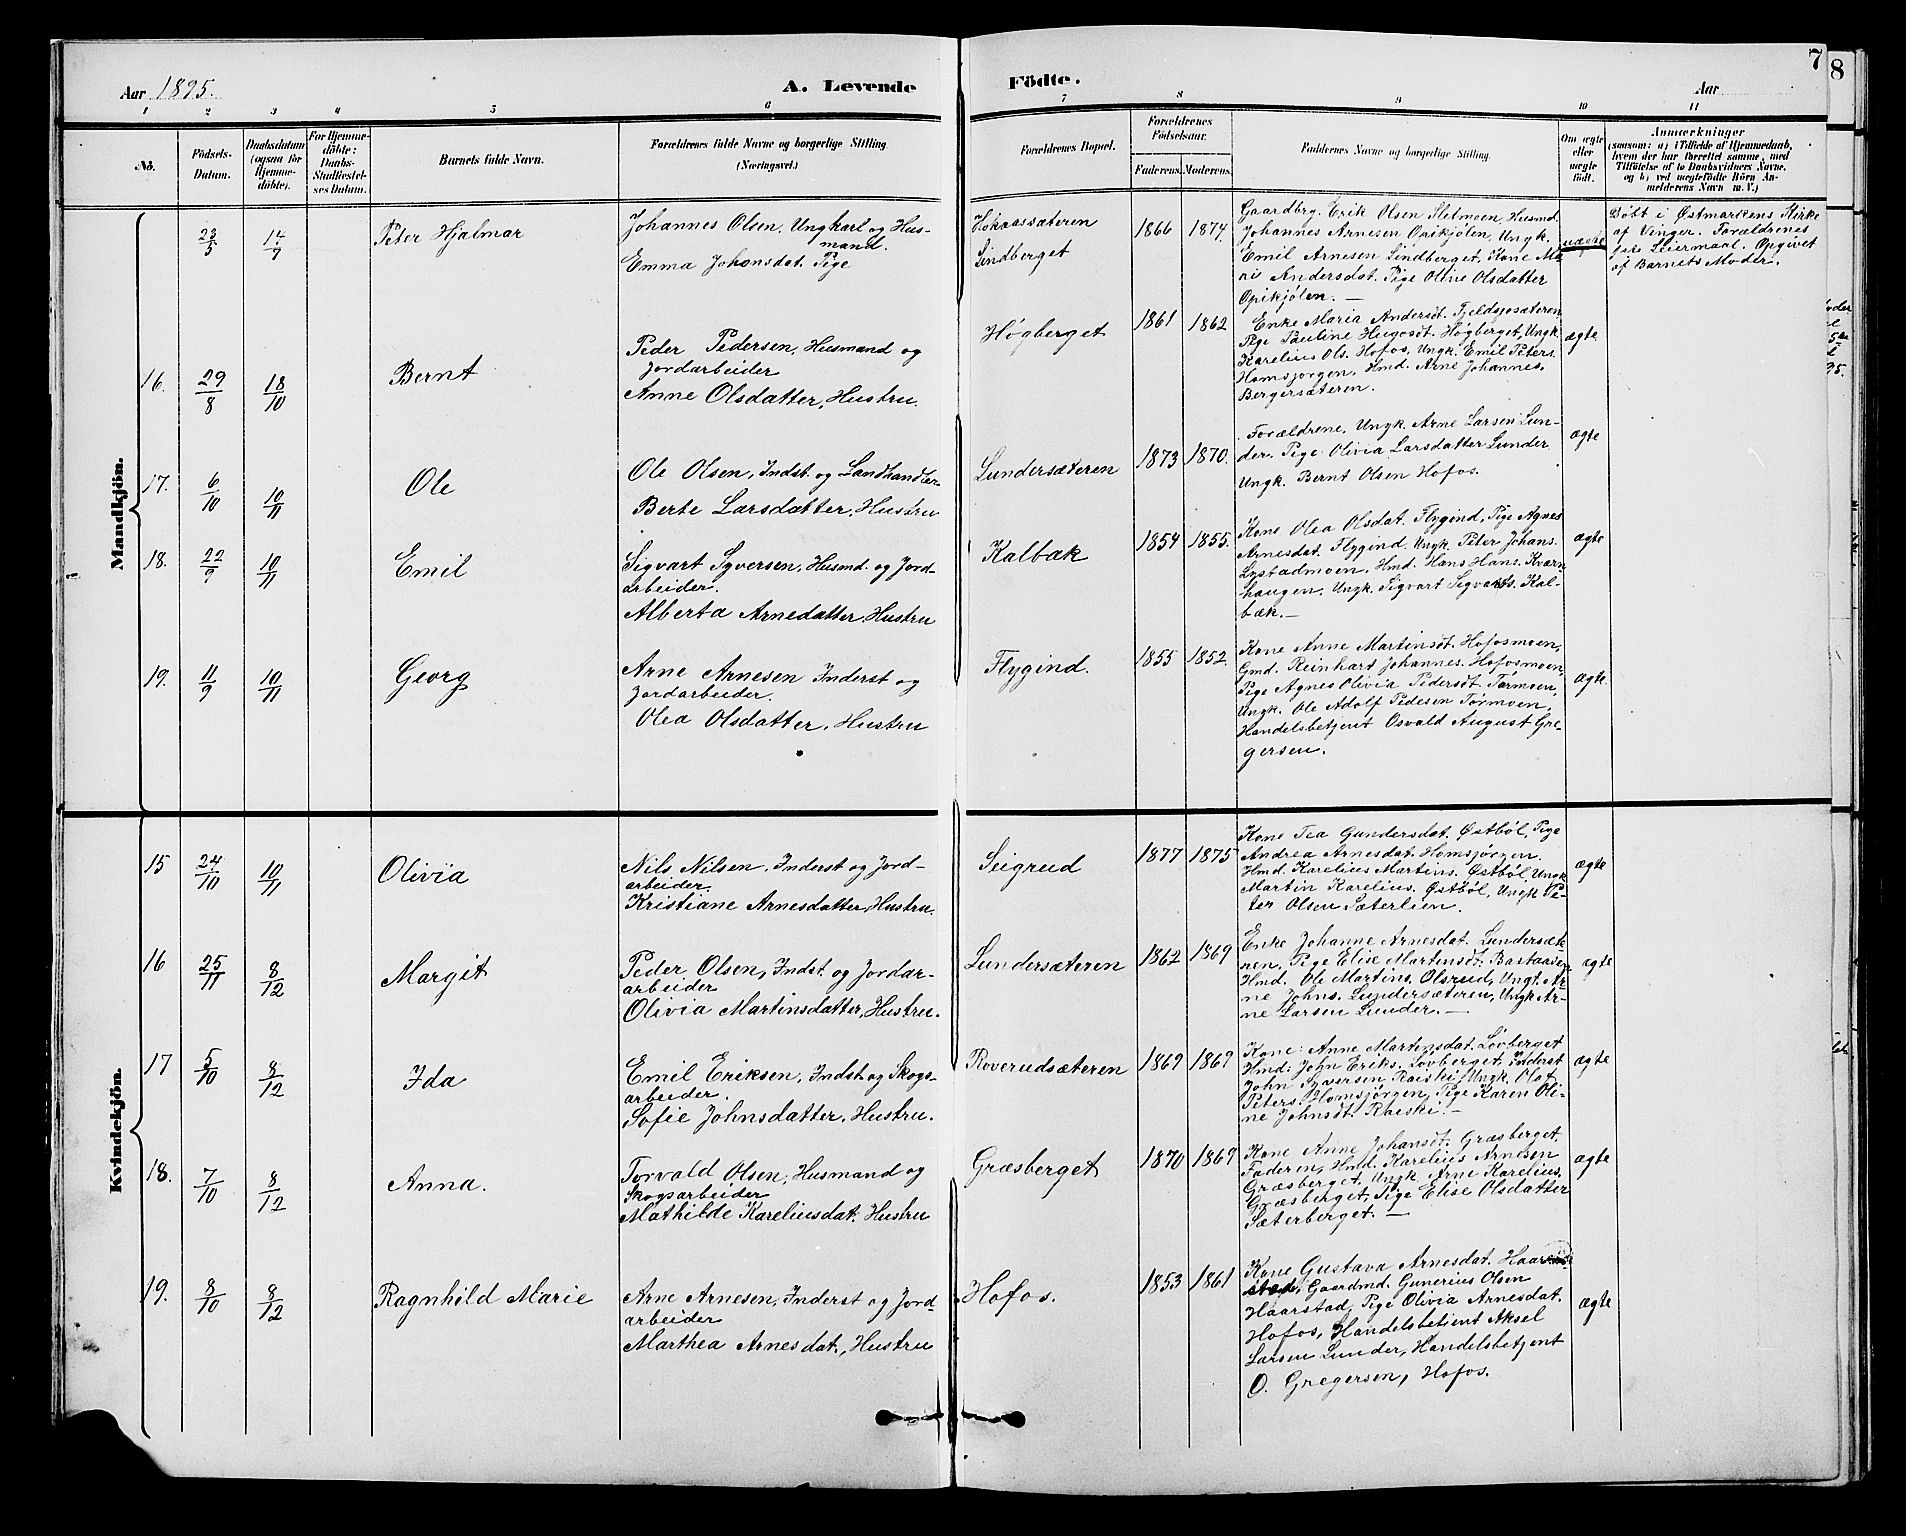 7
8
Aar 1895.
A. Levende
Födte.
Aar
1 2 3 4 5 6
7 8 9 10 11
No.
Födsels-
Datum.
Daabsdatum
(ogsaa for
Hjemme-
döbte).
For Hjemme-
döbte:
Daabs-
Stadfæstel-
ses Datum.
Barnets fulde Navn.
Forældrenes fulde Navne og borgerlige Stilling
(Næringsvei.)
Forældrenes Bopæl.
Forældrenes
Födselsaar.
Faderens.
Moderens.
Faddernes Navne og borgerlige Stilling.
Om ægte
eller
uægte
født.
Anmærkninger
(saasom: a) i Tilfælde af Hjemmedaab,
hvem der har forrettet samme, med
Tilföielse af to Daabsvidners Navne.
og b) ved uægtefödte Börn An-
melderens Navn m. V.)
Mandkjön.
23/5
14/7
Peter Hjalmar
Johannes Olsen, Ungkarl og Hus-
mand.
Emma Johansdat. Pige
Lindberget
1866
1874.
Gaardbrg. Erik Olsen Sletmoen, Husmd.
Johannes Arnesen Opikjölen, Ungk.
Emil Arnesen Lindberget, Kone Ma-
ri Andersdat. Pige Oline Olsdatter
Opikjølen. —
uægte
Döbt i Østmarkens Kirke
af Vinger. Forældrenes
Leiermaal. Opgivet
af Barnets Moder.
16.
29/8
18/10
Bernt
Peder Pedersen, Husmand og
Jordarbeider
Anne Olsdatter, Hustru.
Høgberget
1861
1862
Enke Maria Andersdt. Fjeldsjøsæteren,
Pige Pauline Hugosdt. Høgberget, Ungk.
Karelius Ols. Hofos, Ungk. Emil Peters.
Homsjørgen, Hmd. Arne Johannes.
Bergersæteren.
ægte
17.
6/10
10/11
Ole
Ole Olsen, Indst. og Landhandler
Berte Larsdatter, Hustru
Lundersæteren
1873
1870.
Forældrene, Ungk. Arne Larsen Lun-
der, Pige Olivia Larsdatter Lunder
Ungk. Bernt Olsen Hofos.
ægte
18.
22/9
10/11
Emil
Sigvart Syversen, Husmd. og Jord-
arbeider.
Alberta Arnedatter, Hustru
Kalbæk
1854
1855.
Kone Olea Olsdat. Flygind, Pige Agnes
Arnesdat. Flygind. Ungk. Peter Johans.
Lystadmoen, Hmd. Hans Hans. Kværn-
haugen, Ungk. Sigvart Sigvarts. Kal-
bæk. —
ægte
19.
11/9
10/11
Georg
Arne Arnesen Inderst og
Jordarbeider.
Olea Olsdatter, Hustru
Flygind.
1855
1852.
Kone Anne Martinsdt. Hofosmoen,
Gmd. Reinhart Johannes. Hofosmoen,
Pige Agnes Olivia Pedersdt. Tørmoen,
Ungk. Ole Adolf Pedesen Tørmoen,
Handelsbetjent Osvald August Gre-
gersen.
ægte.
Kvindekjön.
15
24/10
10/11
Olivia
Nils Nilsen, Inderst og Jord-
arbeider.
Kristiane Arnesdatter, Hustru.
Seigrud
1877
1875
Kone Tea Gundersdat. Østböl, Pige
Andrea Arnesdat. Homsjørgen.
Hmd. Karelius Martins. Østböl, Ungk.
Martin Karelius. Østböl, Ungk. Pe-
ter Olsen Sæterlien.
ægte
16
25/11
8/12
Margit
Peder Olsen, Indst. og Jordar-
arbeider
Olivia Martinsdatter, Hustru.
Lundersæteren
1862
1869
Enke Johanne Arnesdat. Lundersæte-
nen, Pige Elise Martinsdt. Bastaasen,
Hmd. Ole Martins. Olsrud, Ungt. Ar-
ne Johns. Lundersæteren, Ungk. Ar-
ne Larsen Lunder. —
ægte
17
5/10
8/12
Ida
Emil Eriksen, Indst. og Skogs-
arbeider.
Sofie Johnsdatter, Hustru.
Roverudsæteren
1869
1869
Kone: Anne Martinsdat. Lövberget
Hmd: John Eriks. Lövberget, Inderst
John Syversen Raiski, Ungk. Olaf
Peters. Homsjørgen, Pige Karen Oli-
ne Johnsdt. Raiski. —
ægte
18.
7/10
8/12
Anna.
Torvald Olsen, Husmand og
Skogsarbeider
Mathilde Kareliusdat. Hustru
Græsberget
1870
1869
Kone Anne Johansdt. Græsberget,
Faderen, Hmd. Karelius Arnesen
Græsberget, Ungk. Arne Karelius.
Græsberget, Pige Elise Olsdatter
Sæterberget. —
ægte
19.
8/10
8/12
Ragnhild Marie
Arne Arnesen, Inderst og Jord-
arbeider
Marthea Arnesdat., Hustru
Hofos.
1853
1861
Kone Gustava Arnesdat. Haar
stad, Gaardmd. Gunerius Olsen
Haarstad, Pige Olivia Arnesdat.
Hofos, Handelsbetjent Aksel
Larsen Lunder, Handelsbetjent
O. Gregersen, Hofos.
ægte